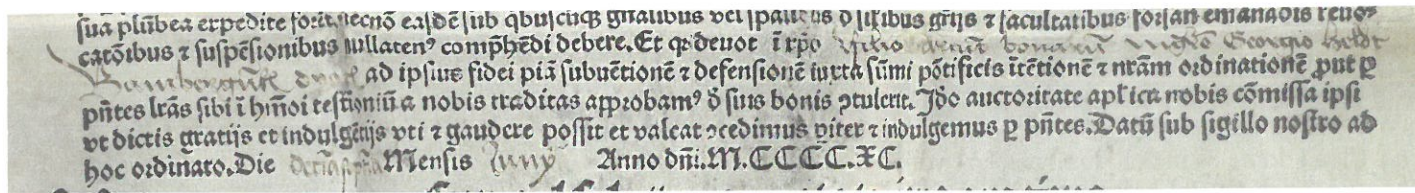 sua plūbea expedite forēt necnō easdē sub qbuscūqꝫ gn̄alibus vel spalibus ⁊ silibus gr̄ijs ⁊ facultatibus forsan emanādis reuo⸗
catōibus ⁊ suspēsionibus nullatenꝰ comp̄hēdi debere. Et qꝛ deuot ī xp̄o Georgio
Bambergn̄ ad ipsius fidei piā subuētionē ⁊ defensionē iuxta sūmi pōtificis ītētionē ⁊ nr̄am ordinationē ꝓut ꝑ
pn̄tes lr̄as sibi ī hm̄oi testīoniū a nobis traditas approbamꝰ ꝺ suis bonis ꝯtulerit. Jd̄o auctoritate apl̄ica nobis cōmissa ipsi
vt dictis gratijs et indulgētijs vti ⁊ gaudere possit et valeat ꝯcedimus ꝑiter ⁊ indulgemus ꝑ pn̄tes. Datū sub sigillo nostro ad
hoc ordinato. Die Mensis Junij Anno dn̄i. M.CCCC.XC.